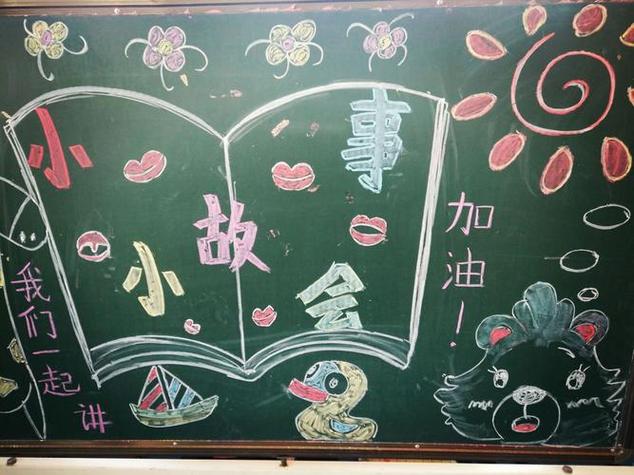 小小故事会
我们一起讲
加油！